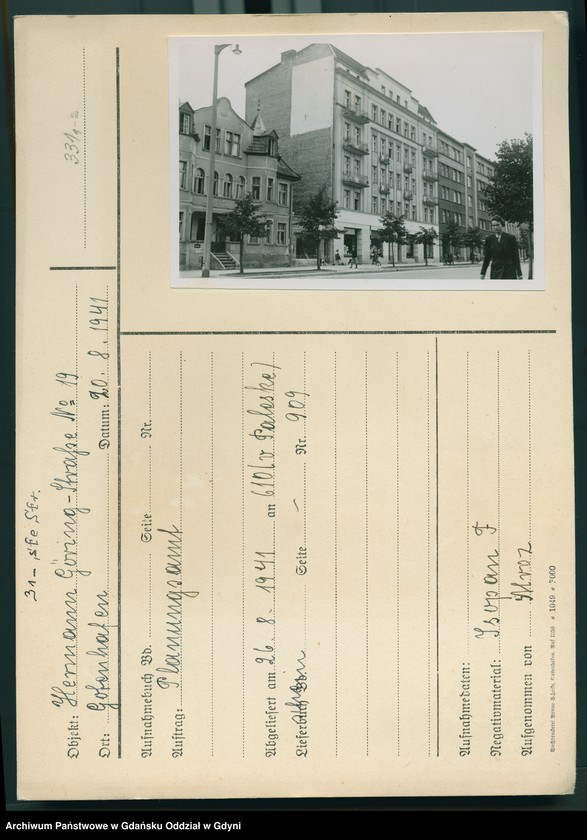 331,-2
31 - ste Str.
Objekt: Hermann Göring-Straße No 19
Ort: Gotenhafen Datum: 20.8.1941
Aufnahmebuch Bd. Seite Nr.
Auftrag: Planungsamt
Abgeliefert am 26.8.1941 an 610 (v Paleske)
Lieferbuch Bd. Seite — Nr. 909
Aufnahmedaten:
Negativmaterial: Isopan F
Aufgenommen von Mroz
Archiwum Państwowe w Gdańsku Oddział w Gdyni